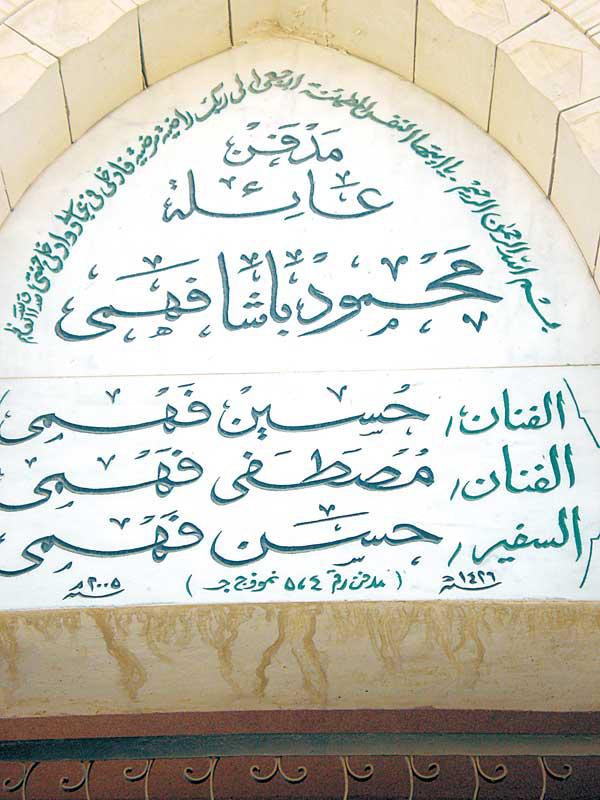 بسم الله الرحمن الرحيم يا أيتها النفس المطمئنة ارجعي إلى ربك راضية مرضية فادخلي في عبادي وادخلي جنتي صدق الله العظيم
مدفن
عائلة
محمود باشا فهمى
الفنان / حُسين فَهْمى
الفنان / مُصطَفى فَهْمى
السفير / حسن فَهْمى
١٤٢٦هـ ( مدفن رقم ٥٧٤ نموذج جـ ) ٢٠٠٥م